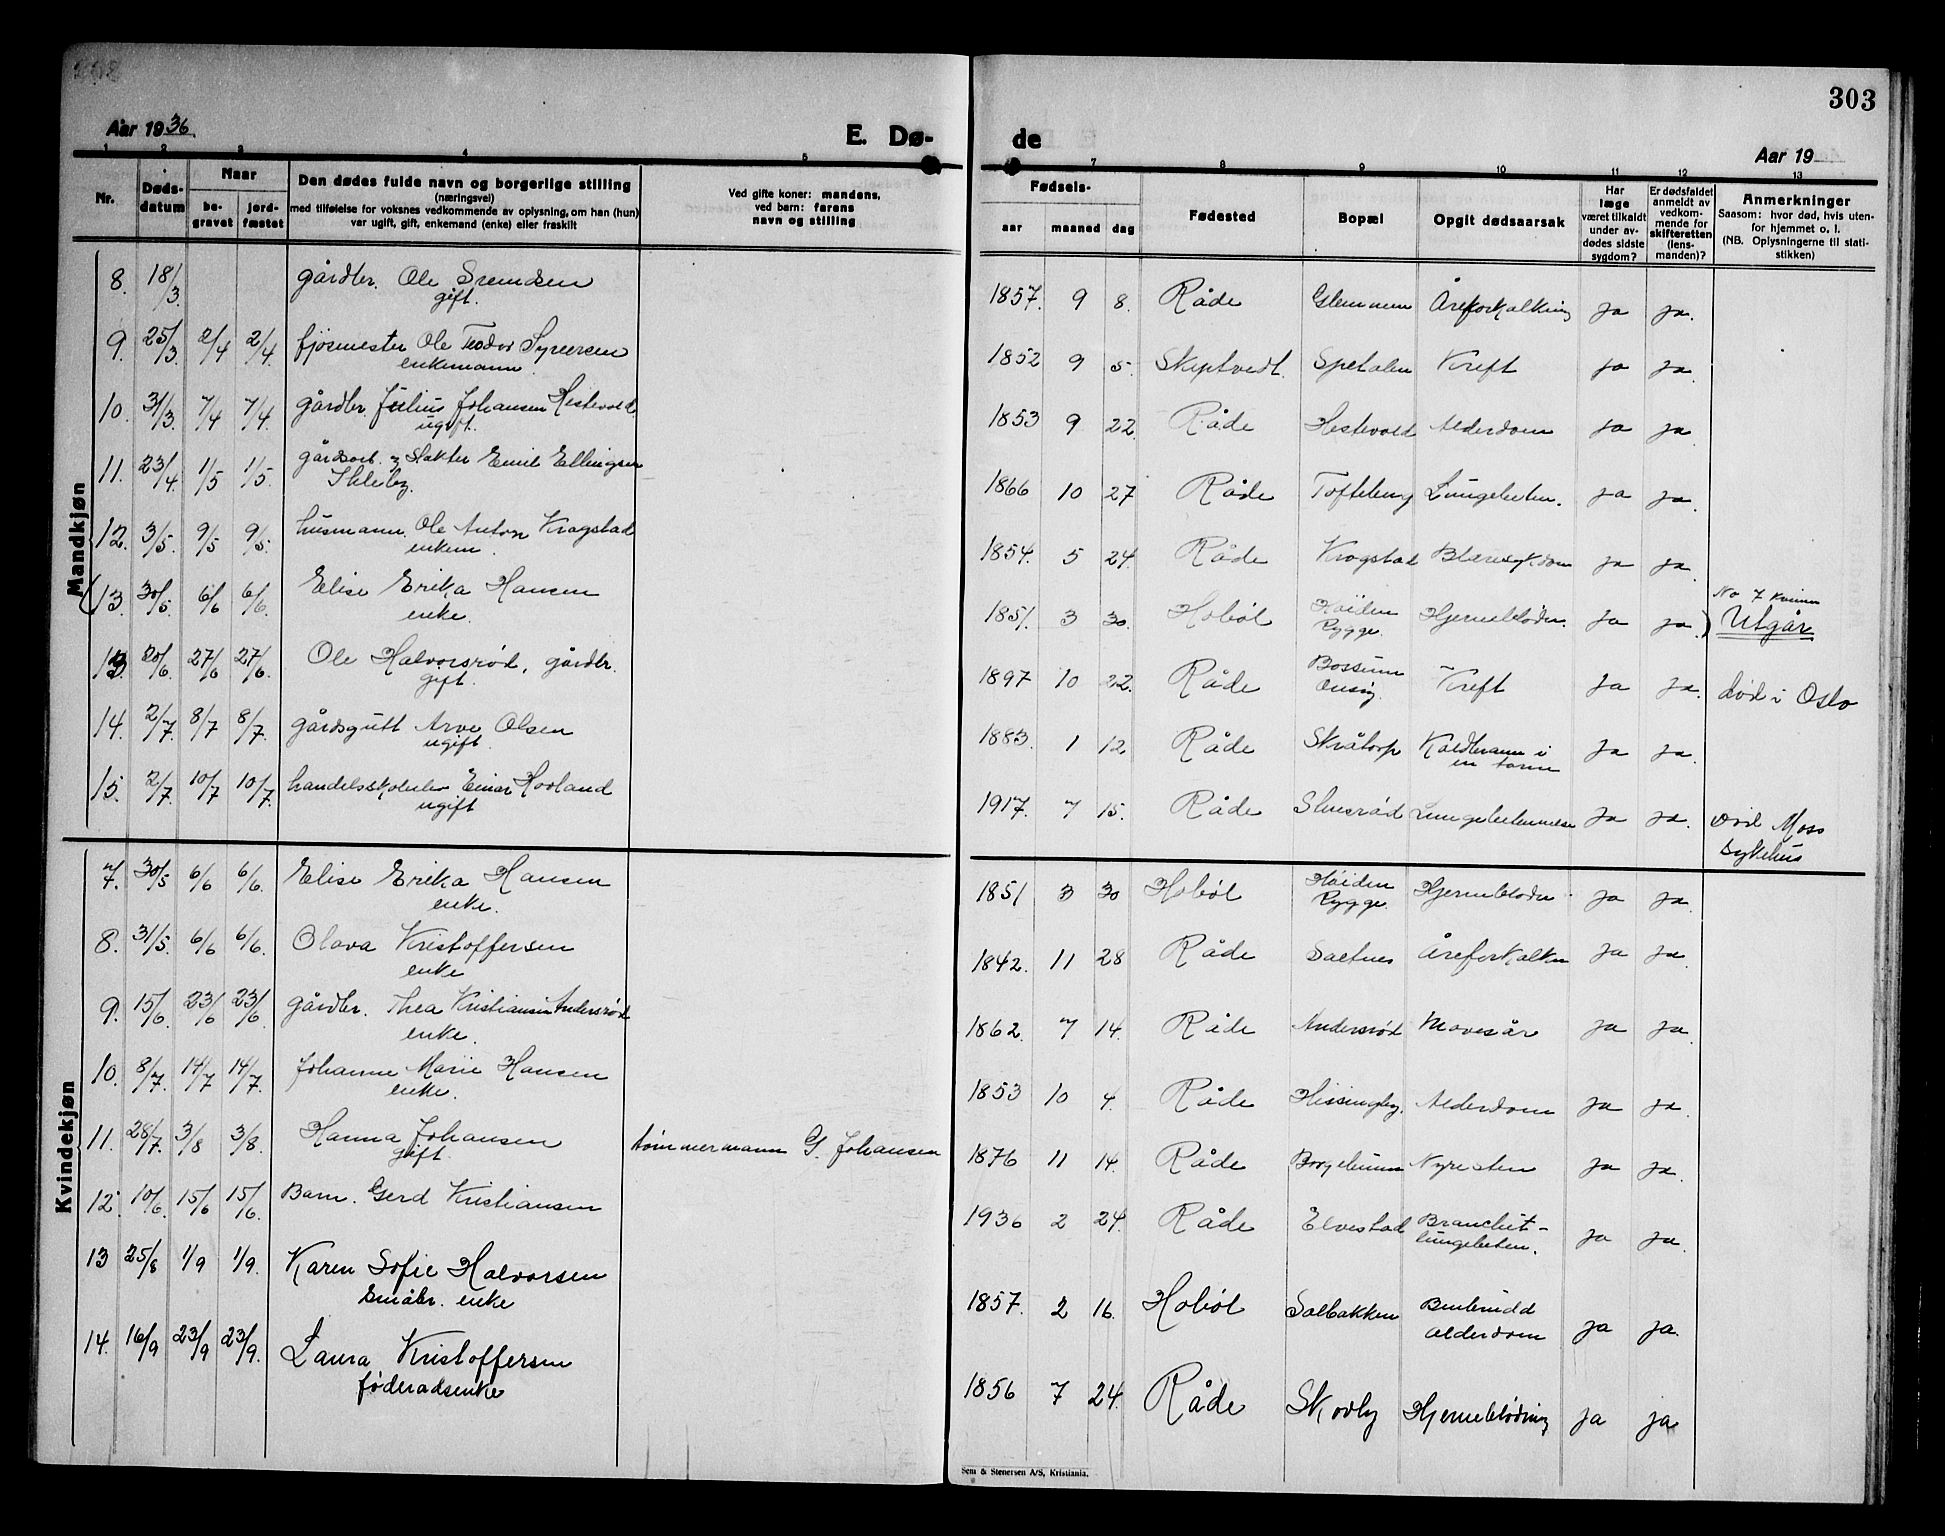 303
Aar 1936
E. Dø-
de
Aar 19
1 2 3 4 5 7 8 9 10 11 12 13
Nr.
Døds-
datum
Naar
be-
gravet
jord-
fæstet
Den dødes fulde navn og borgerlige stilling
(næringsvei)
med tilføielse for voksnes vedkommende av oplysning, om han (hun)
var ugift, gift, enkemand (enke) eller fraskilt
Ved gifte koner: mandens,
ved barn: farens
navn og stilling
Fødsels-
aar maaned dag
Fødested
Bopæl
Opgit dødsaarsak
Har
læge
været tilkaldt
under av-
dødes sidste
sygdom?
Er dødsfaldet
anmeldt av
vedkom-
mende for
skifteretten
(lens-
manden)?
Anmerkninger
Saasom: hvor død, hvis uten-
for hjemmet o. l.
(NB. Oplysningerne til stati-
stikken)
Mandkjøn
8. 18/3. gårdbr. Ole Svendsen 1857. 9 8. Råde Glemmen Åreforkalkning ja ja.
gift.
9. 25/3 2/4 2/4 fjøsmester Ole Teodor Syversen 1852 9 5. Skiptvedt. Spetalen Kreft ja ja.
enkemann.
10. 31/3. 7/4 7/4. gårdbr. Julius Johansen Hestevold 1853 9 22. Råde Hestevold Alderdom ja ja
ugift.
11. 23/4. 1/5 1/5. gårdsarb. og slakter Emil Ellingsen 1866 10 27 Råde Lungebeten. ja ja.
12. 3/5. 9/5 9/5. husmann Ole Anton Krogstad 1854. 5 24. Råde Krogstad Blæresykdom ja ja.
enkem.
(13. 30/5. 6/6 6/6. Elise Erika Hansen 1851. 3 30. Hobøl Høiden Rygge. Hjerneblødn. ja ja.) No 7 kvinn
enke. Utgår
13. 20/6. 27/6 27/6. Ole Halvorsrød, gårdbr. 1897 10 22. Råde Bossum Onsøy. Kreft ja ja. død i Oslo
gift.
14. 2/7. 8/7 8/7. gårdsgutt Arve Olsen 1883. 1 12. Råde Skråtorp Koldbrann i ja ja.
ugift. en tarm
15. 2/7. 10/7 10/7. handelsskoleelev Einar Hovland 1917. 7 15. Råde Lungebetennelse ja ja. død Moss
ugift sykehus
Kvindekjøn
7. 30/5 6/6 6/6. Elise Erika Hansen 1851 3 30 Hobøl Høiden Rygge. Hjerneblødn ja ja.
enke.
8. 31/5. 6/6 6/6. Olava Kristoffersen 1842. 11 28 Råde Saltnes Åreforkalkn ja ja.
enke
9. 15/6. 23/6 23/6. gårdbr. Thea Kristiansen Andersrød 1862. 7 14. Råde Andersrød Mavesår ja ja.
enke.
10. 8/7. 14/7 14/7. Johanne Marie Hansen 1853 10 4. Råde Hissingby. Alderdom ja ja.
enke.
11. 28/7. 3/8 3/8. Hanna Johansen tømmermann G. Johansen 1876 11 14. Råde Borgebunn Nyresten ja ja.
gift.
12. 10/6. 15/6 15/6. Barn. Gerd Kristiansen 1936 2 24. Råde Elvestad Bronchit-
lungebeten. ja ja.
13 25/8 1/9 1/9. Karen Sofie Halvorsen 1857. 2 16. Hobøl Solbakken Benbrudd
Småbr. enke alderdom ja ja.
14. 16/9 23/9 23/9. Laura Kristoffersen 1856 7 24. Råde Skovby Hjerneblødning ja ja
føderadsenke
Sem & Stenersen A/S, Kristiania.